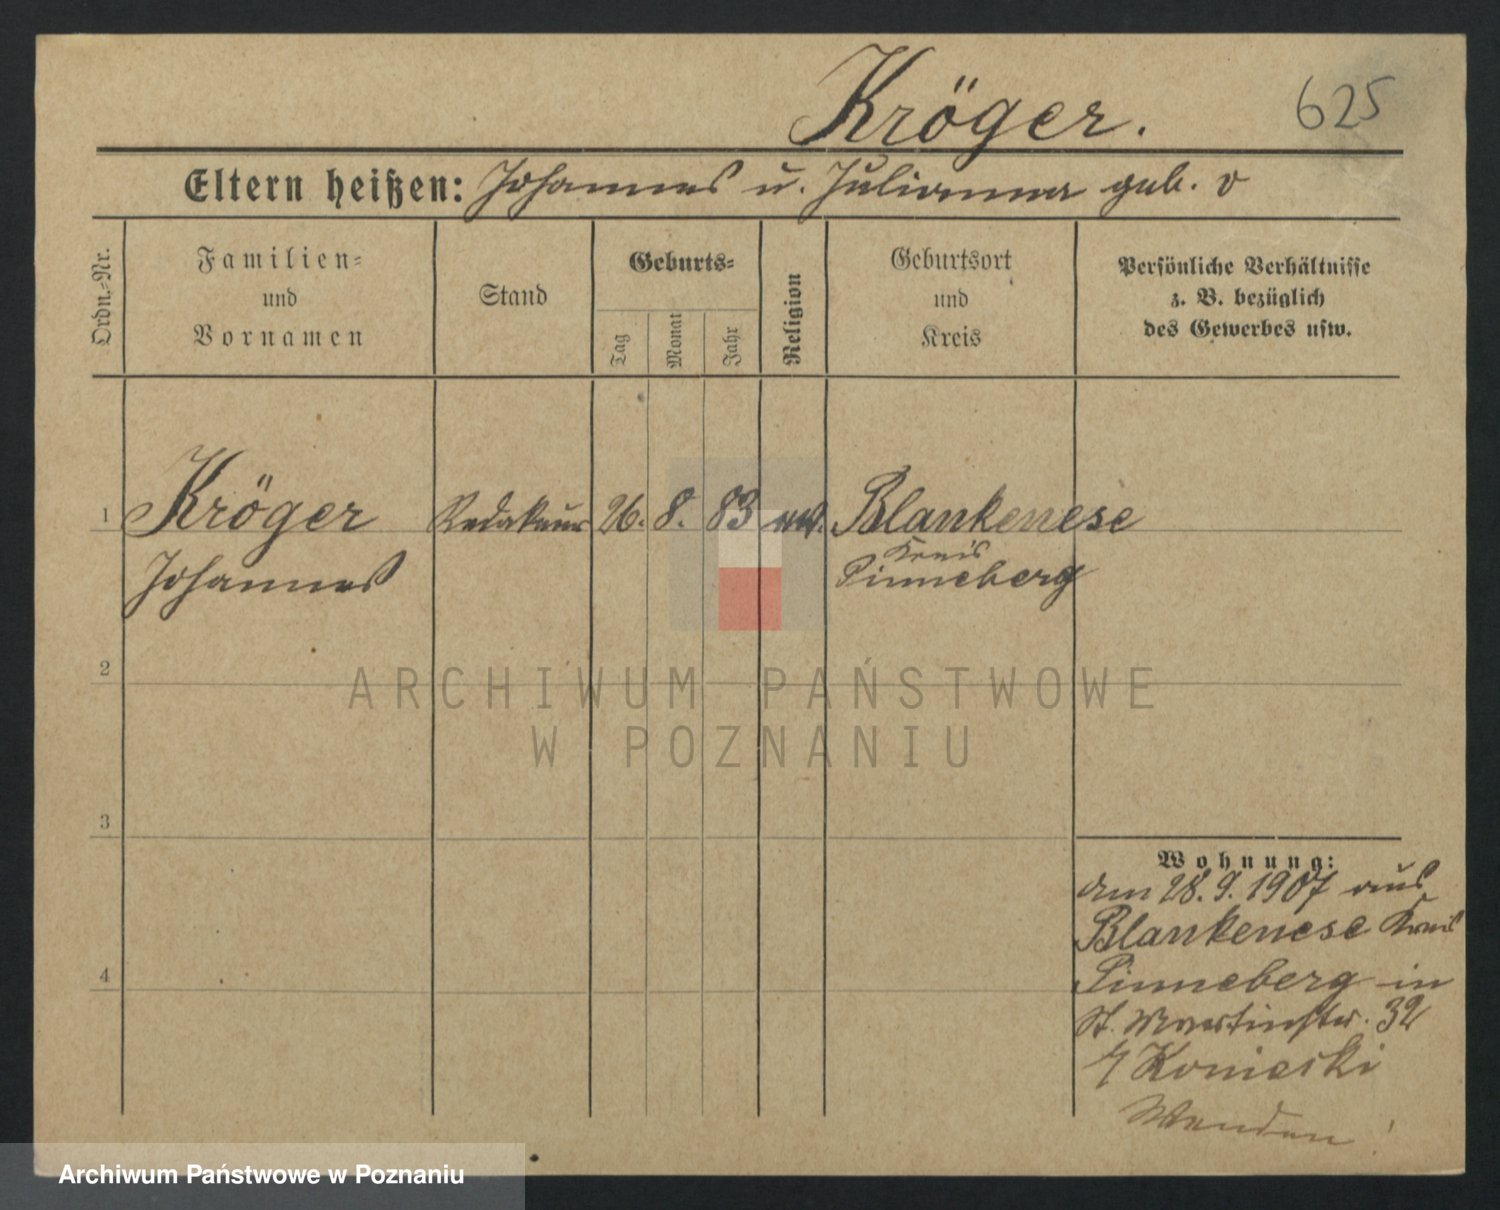 Kröger.
625
Eltern heißen: Johannes u. Julianna geb. v
Ordn.-Nr.
Familien-
und
Vornamen
Stand
Geburts-
Tag
Monat
Jahr
Religion
Geburtsort
und
Kreis
Persönliche Verhältnisse
z. B. bezüglich
des Gewerbes usw.
1
Kröger
Johannes
Redakteur
26. 8. 83
Blankenese
Kreis
Pinneberg
2
3
4
Wohnung:
am 28. 9. 1907 aus
Blankenese Kreis
Pinneberg in
St. Martinstr. 32
Konieski
Wenden!
ARCHIWUM PAŃSTWOWE
W POZNANIU
Archiwum Państwowe w Poznaniu